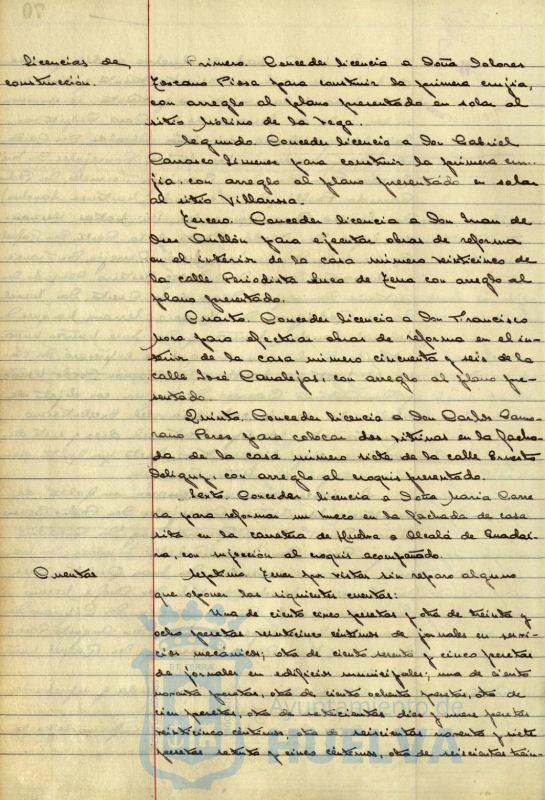 Licencias de
construcción.
Primero. Conceder licencia a Doña Dolores
Toscano Piosa para construir la primera crujia,
con arreglo al plano presentado en solar al
sitio Molino de la Vega.
Segundo. Conceder licencia a Don Gabriel
Carrasco Jimenez para construir la primera cru-
jia, con arreglo al plano presentado en solar
al sitio Villarrosa.
Tercero. Conceder licencia a Don Juan de
Dios Aullón para ejecutar obras de reforma
en el interior de la casa número veinticinco de
la calle Periodista Luca de Tena con arreglo al
plano presentado.
Cuarto. Conceder licencia a Don Francisco
Mora para efectuar obras de reforma en el in-
terior de la casa número cincuenta y seis de la
calle José Canalejas, con arreglo al plano pre-
sentado.
Quinto. Conceder licencia a Don Carlos Zamo-
rano Perez para colocar dos vitrinas en la facha-
da de la casa número siete de la calle Ernesto
Deligny, con arreglo al croquis presentado.
Sexto. Conceder licencia a Doña Maria Carre-
ra para reformar un hueco en la fachada de casa
sita en la carretera de Huelva a Alcalá de Guadai-
ra, con sujección al croquis acompañado.
Cuentas
Septimo. Tener por vistas sin reparo alguno
que oponer las siguientes cuentas:
Una de ciento cinco pesetas y otra de treinta y
ocho pesetas veinticinco céntimos de jornales en servi-
cios mecánicos; otra de ciento sesenta y cinco pesetas
de jornales en edificios municipales; una de ciento
noventa pesetas, otra de ciento ochenta pesetas, otra de
cien pesetas, otra de setecientas diez y nueve pesetas
veinticinco céntimos, otra de seiscientas noventa y siete
pesetas setenta y cinco céntimos, otra de seiscientas trein-
Ayuntamiento de
HUELVA